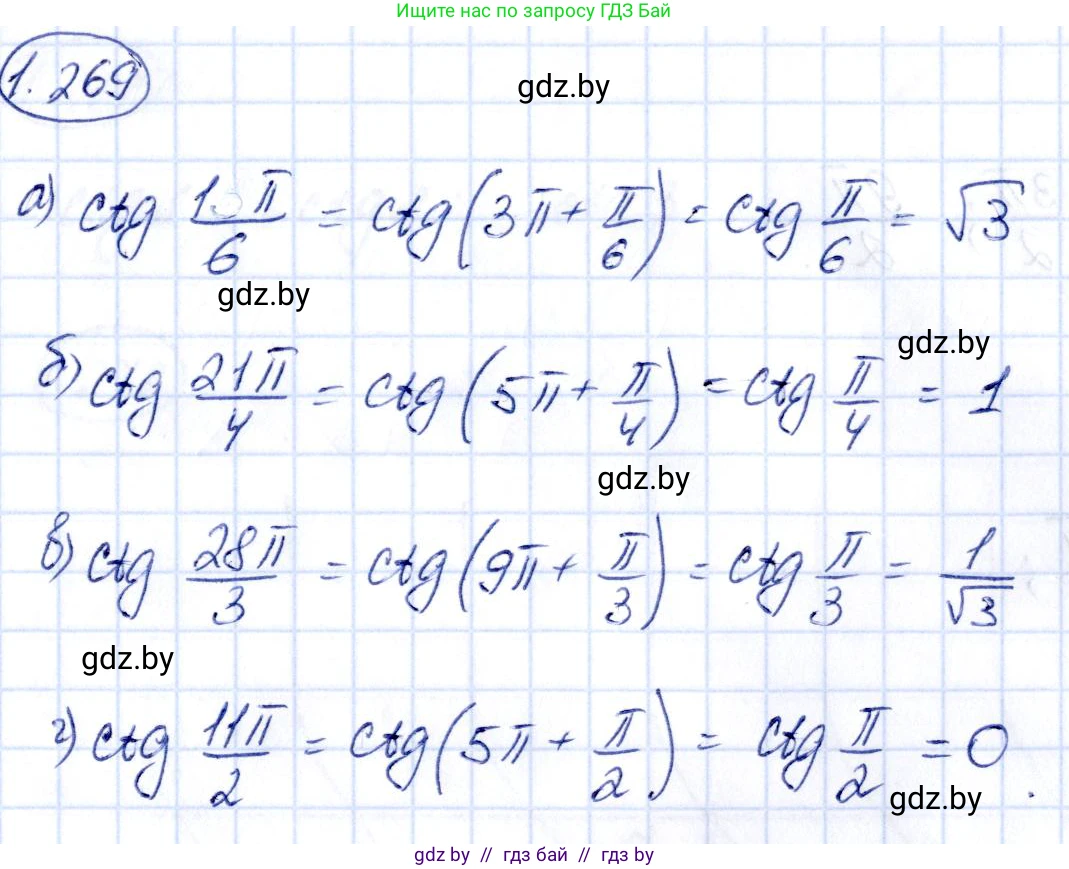 Ищите нас по запросу ГДЗ Бай
1.269
gdz.by
а) ctg π/6 = ctg(3π + π/6) = ctg π/6 = √3
gdz.by
gdz.by
б) ctg 21π/4 = ctg(5π + π/4) = ctg π/4 = 1
gdz.by
в) ctg 28π/3 = ctg(9π + π/3) = ctg π/3 = 1/√3
gdz.by
г) ctg 11π/2 = ctg(5π + π/2) = ctg π/2 = 0.
gdz.by
gdz by // гдз бай // гдз by